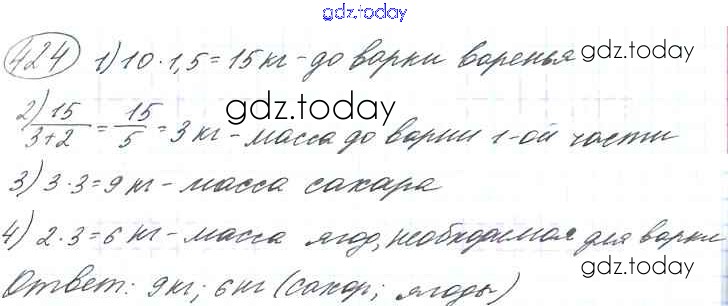 gdz.today
424 1) 10 · 1,5 = 15 кг - до варки варенья gdz.today
2) 15/(3+2) = 15/5 = 3 кг - масса до варки 1-ой части
gdz.today
3) 3 · 3 = 9 кг - масса сахара
4) 2 · 3 = 6 кг - масса ягод, необходимая для варки
gdz.today
Ответ: 9 кг; 6 кг (сахар; ягоды)